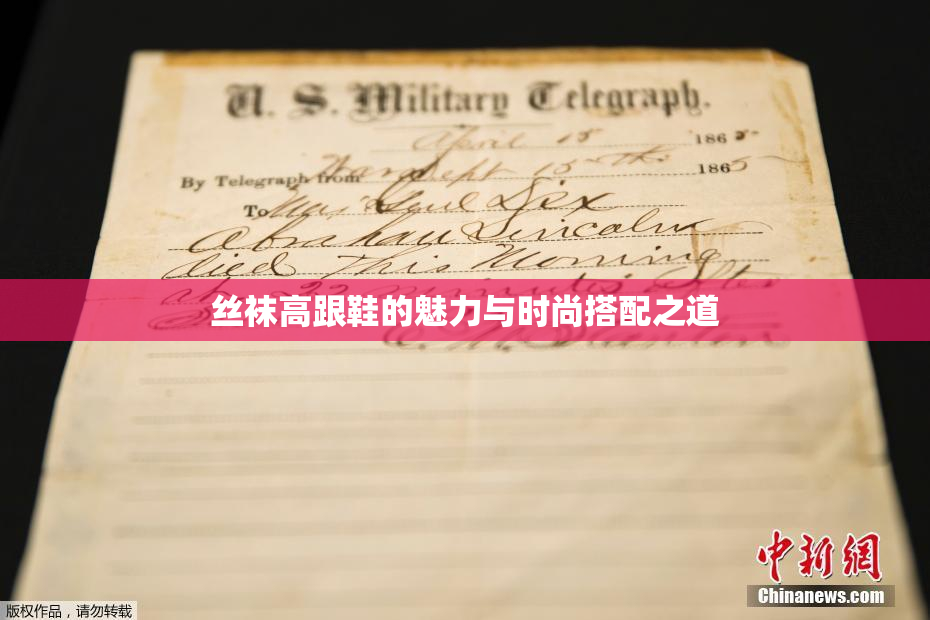 U. S. Military Telegraph.
April 15 1865
By Telegraph from War Dept 15th 1865
To Maj Genl Dix
Abraham Lincoln
died this Morning
at 22 minutes after
丝袜高跟鞋的魅力与时尚搭配之道
E. M. Stanton
中新网
Chinanews.com
版权作品,请勿转载